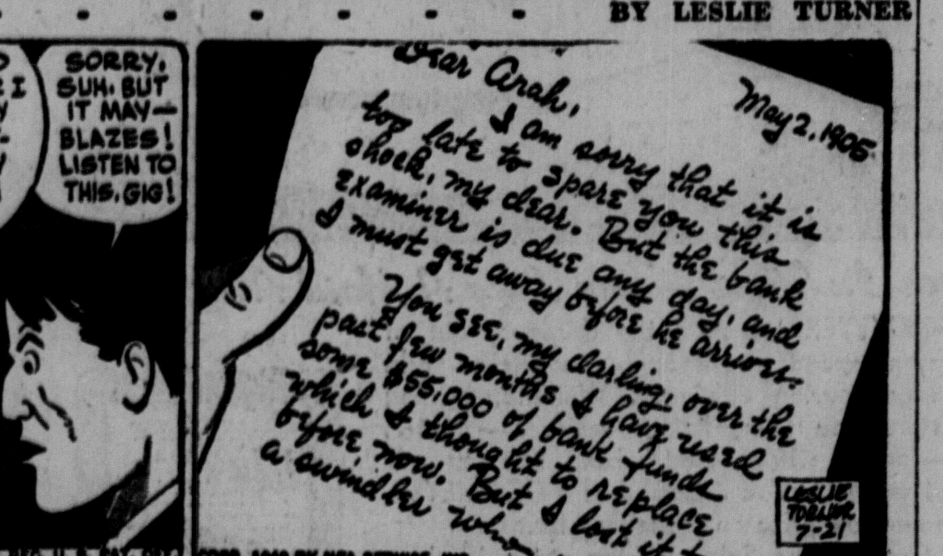 BY LESLIE TURNER
I
SORRY,
SUH. BUT
IT MAY—
BLAZES!
LISTEN TO
THIS, GIG!
Dear Arah,
May 2, 1905
I am sorry that it is
too late to spare you this
shock, my dear. But the bank
examiner is due any day, and
I must get away before he arrives.
You see, my darling, over the
past few months I have used
some $55,000 of bank funds
which I thought to replace
before now. But I lost it
a swindler who
LESLIE
TURNER
7-21